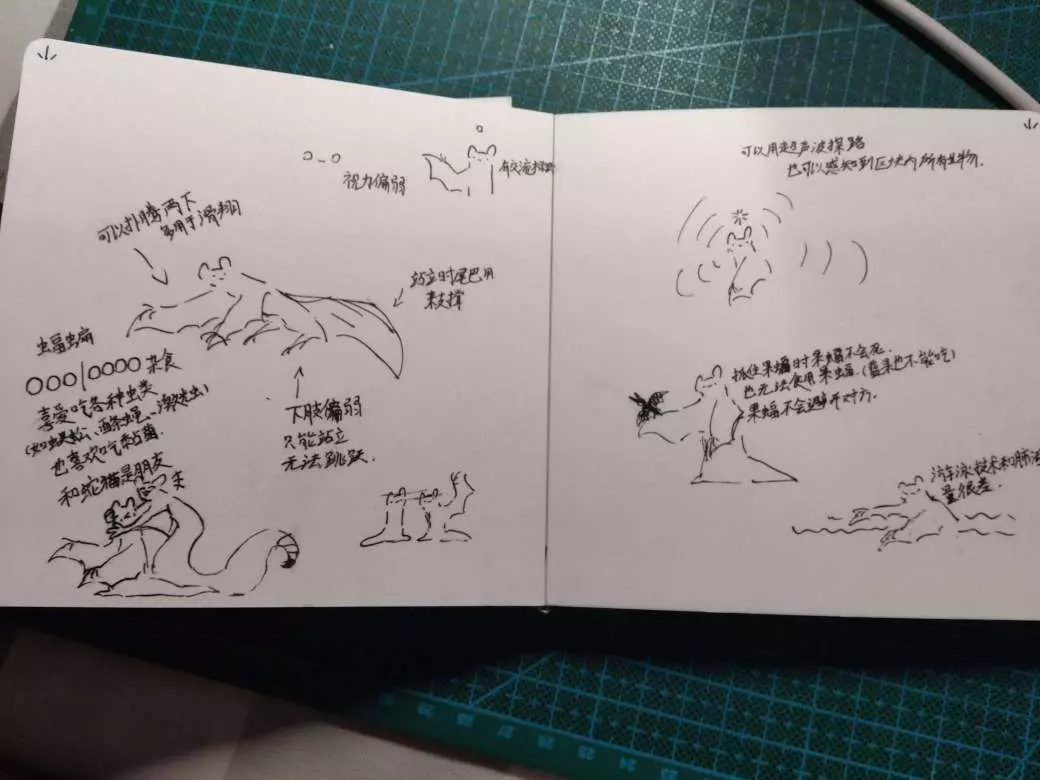 视力偏弱
有交流
可以扑腾两下
多用于滑翔
站立时尾巴用
来支撑
蝙蝠
杂食
喜爱吃各种虫类
也喜欢吃蘑菇
和蛇猫是朋友
下肢偏弱
只能站立
无法跳跃.
可以用超声波探路
也可以感知到区块内所有生物.
抓住果蝠时果蝠不会死.
也无法食用果蝠.(蓝果也不能吃)
果蝠不会避开对方.
游泳技术和肺活
量很差.